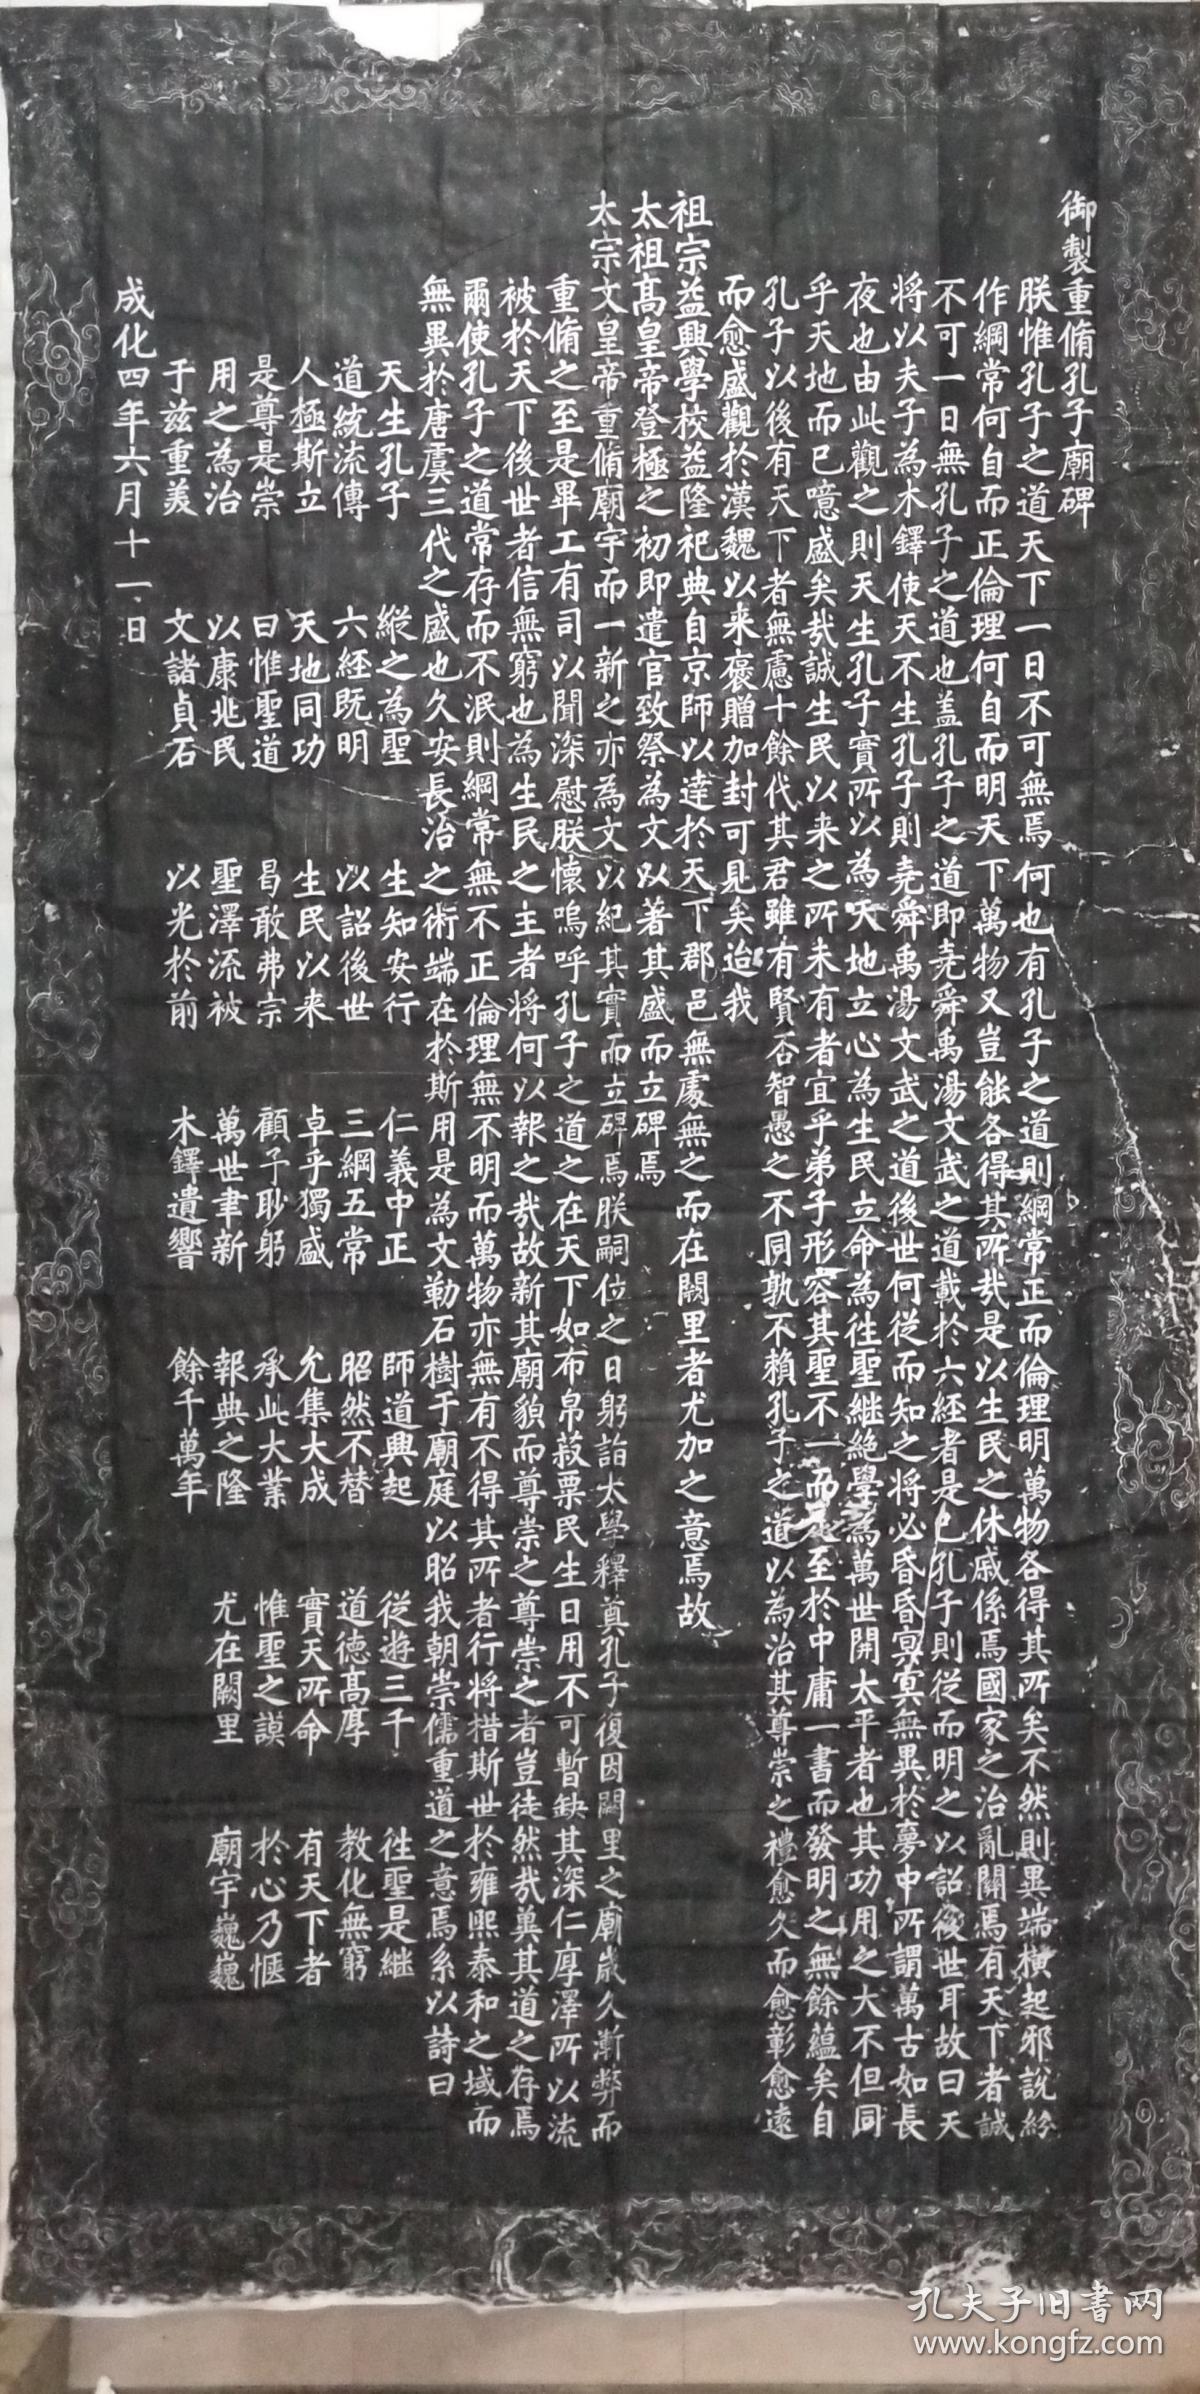 御製重脩孔子廟碑
朕惟孔子之道天下一日不可無焉何也有孔子之道則綱常正而倫理明萬物各得其所矣不然則異端橫起邪說紛
作綱常何自而正倫理何自而明天下萬物又豈能各得其所㢤是以生民之休戚係焉國家之治亂關焉有天下者誠
不可一日無孔子之道也盖孔子之道即堯舜禹湯文武之道載於六經者是已孔子則從而明之以詔後世耳故曰天
將以夫子為木鐸使天不生孔子則堯舜禹湯文武之道後世何從而知之將必昏昏冥冥無異於夢中所謂萬古如長
夜也由此觀之則天生孔子實所以為天地立心為生民立命為徃聖継絶學為萬世開太平者也其功用之大不但同
乎天地而已噫盛矣㢤誠生民以来之所未有者宜乎弟子形容其聖不一而足至於中庸一書而發明之無餘蘊矣自
孔子以後有天下者無慮十餘代其君雖有賢否智愚之不同孰不賴孔子之道以為治其尊崇之禮愈久而愈彰愈遠
而愈盛觀於漢魏以来褒贈加封可見矣迨我
祖宗益興學校益隆祀典自京師以達於天下郡邑無處無之而在闕里者尤加之意焉故
太祖髙皇帝登極之初即遣官致祭為文以著其盛而立碑焉
太宗文皇帝重脩廟宇而一新之亦為文以紀其實而立碑焉朕嗣位之日躬詣太學釋奠孔子復因闕里之廟歲久漸弊而
重脩之至是畢工有司以聞深慰朕懷嗚呼孔子之道之在天下如布帛菽粟民生日用不可暫缺其深仁厚澤所以流
被於天下後世者信無窮也為生民之主者將何以報之㢤故新其廟貌而尊崇之尊崇之者豈徒然㢤冀其道之存焉
爾使孔子之道常存而不泯則綱常無不正倫理無不明而萬物亦無有不得其所者行將措斯世於雍熙泰和之域而
無異於唐虞三代之盛也久安長治之術端在於斯用是為文勒石樹于廟庭以昭我朝崇儒重道之意焉系以詩曰
天生孔子 縱之為聖 生知安行 仁義中正 師道興起 從遊三千 徃聖是継
道統流傳 六經既明 以詔後世 三綱五常 昭然不替 道德髙厚 教化無窮
人極斯立 天地同功 生民以来 卓乎獨盛 允集大成 實天所命 有天下者
是尊是崇 曰惟聖道 曷敢弗宗 顧予眇躬 承此大業 惟聖之謨 於心乃愜
用之為治 以康兆民 聖澤流被 萬世聿新 報典之隆 尤在闕里 廟宇巍巍
于兹重羙 文諸貞石 以光於前 木鐸遺響 餘千萬年
成化四年六月十一日
孔夫子旧书网
www.kongfz.com